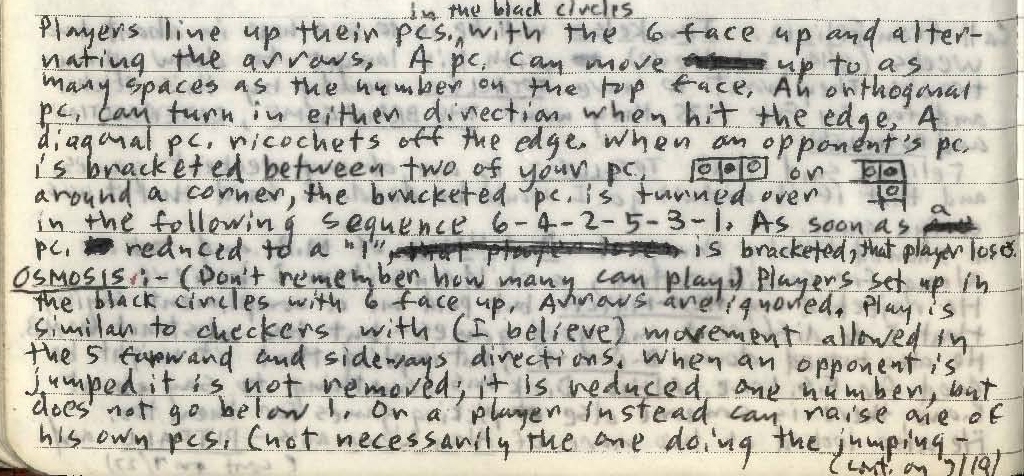 in the black circles
Players line up their pcs. with the 6 face up and alter-
nating the arrows. A pc. can move up to as
many spaces as the number on the top face. An orthogonal
pc. can turn in either direction when hit the edge. A
diagonal pc. ricochets off the edge. When an opponent's pc.
is bracketed between two of your pc. or
around a corner, the bracketed pc. is turned over
in the following sequence 6-4-2-5-3-1. As soon as a
pc. reduced to a "1", is bracketed, that player loses.
OSMOSIS:- (Don't remember how many can play.) Players set up in
the black circles with 6 face up. Arrows are ignored. Play is
similar to checkers with (I believe) movement allowed in
the 5 forward and sideways directions. When an opponent is
jumped it is not removed; it is reduced one number, but
does not go below 1. Or a player instead can raise one of
his own pcs. (not necessarily the one doing the jumping-
(cont. on 7/19)